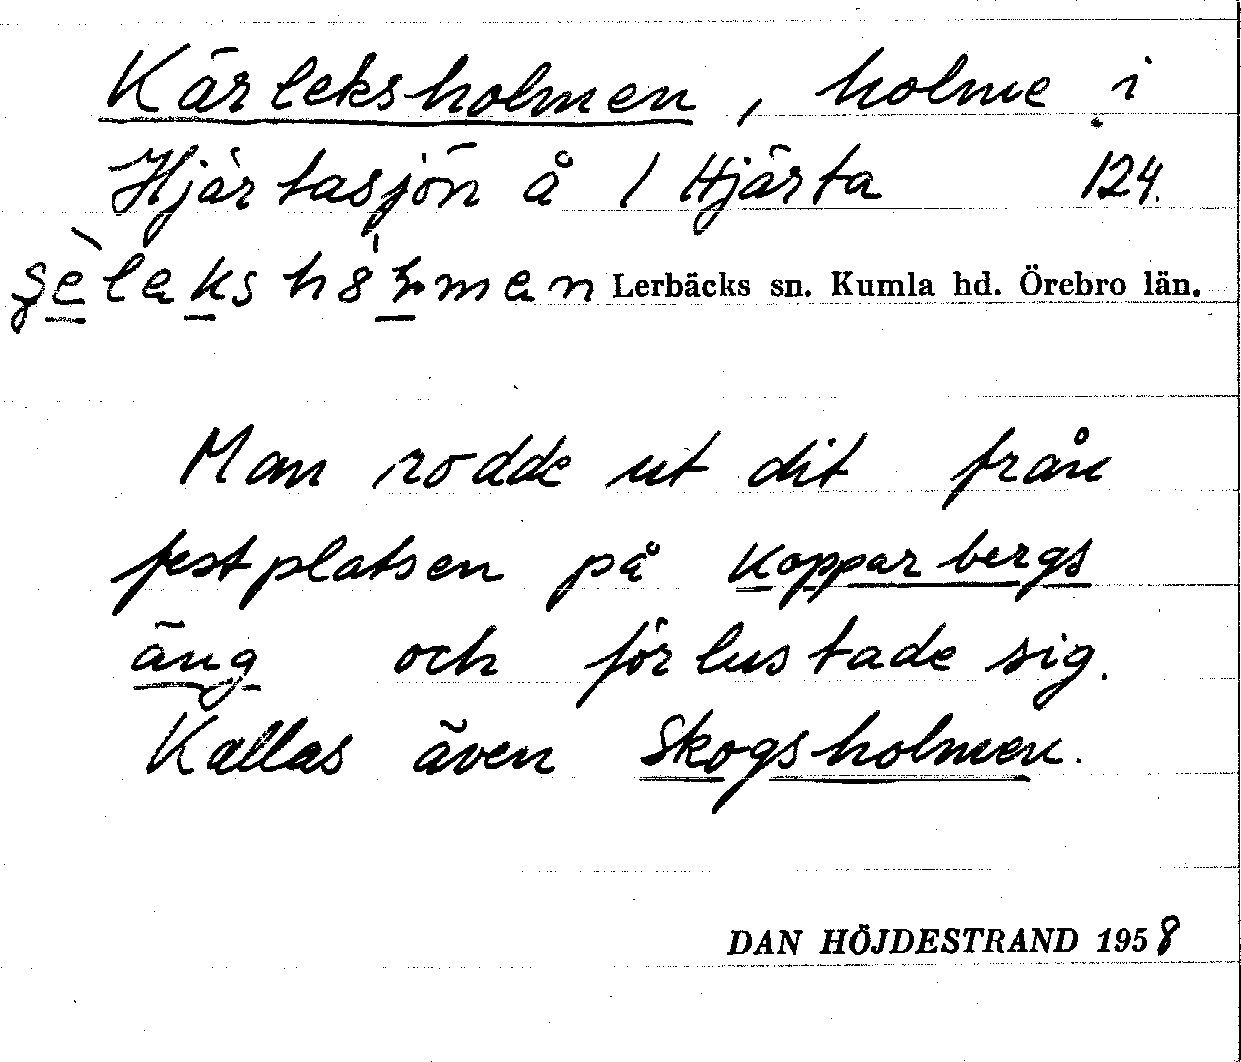 Kärleksholmen, holme i
Hjärtasjön å 1 Hjärta 124.
Lerbäcks sn. Kumla hd. Örebro län.
Man rodde ut dit från
festplatsen på Kopparbergs
äng och förlustade sig.
Kallas även Skogsholmen.
DAN HÖJDESTRAND 1958